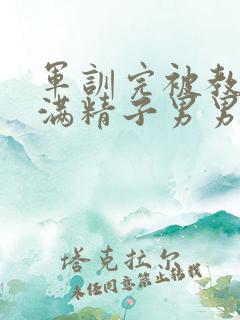 军訓完被教
滿精子男男
塔克拉尔
未经同意禁止转载